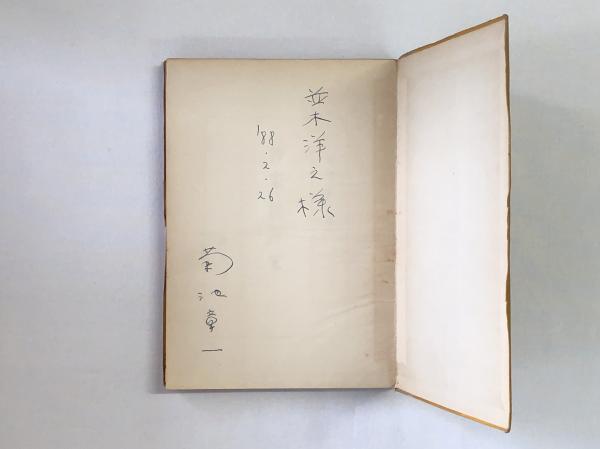 並木洋之様
'88.2.26
菊池章一